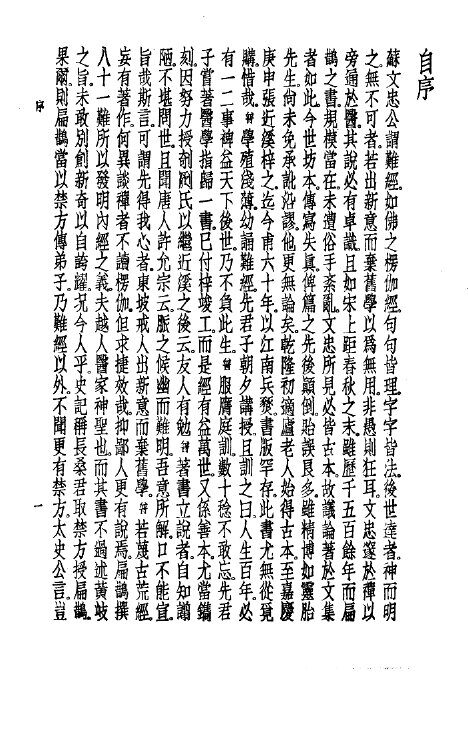 自序
蘇文忠公謂難經如佛之楞伽經句句皆理字字皆法後世達者神而明
之無不可者若出新意而棄舊學以爲無用非愚則狂耳文忠邃於禪以
旁通於醫其說必有卓識且如宋上距春秋之末雖歷千五百餘年而扁
鵲之書規模當在未遭俗手紊亂文忠所見必皆古本故議論著於文集
者如此今世坊本傳寫失眞俾篇之先後顚倒貽誤良多雖精博如靈胎
先生尙未免承訛沿謬他更無論矣乾隆初適廬老人始得古本至嘉慶
庚申張近溪梓之迄今甫六十年以江南兵燹書版罕存此書尤無從覓
購惜哉 學殖淺薄幼誦難經先君子朝夕講授且訓之曰人生百年必
有一二事裨益天下後世乃不負此生 服膺庭訓數十稔不敢忘先君
子嘗著醫學指歸一書已付梓竣工而是經有益萬世又係善本尤當鐫
刻因努力授剞劂氏以繼近溪之後云友人有勉 著書立說者自知譾
陋不堪問世且聞唐人許允宗云脈之候幽而難明吾意所解口不能宣
旨哉斯言可謂先得我心者東坡戒人出新意而棄舊學 若蔑古荒經
妄有著作何異談禪者不讀楞伽但求捷效哉抑鄙人更有說焉扁鵲撰
八十一難所以發明內經之義夫越人醫家神聖也而其書不過述黃岐
之旨未敢別創新奇以自誇耀況今人乎史記稱長桑君取禁方授扁鵲
果爾則扁鵲當以禁方傳弟子乃難經以外不聞更有禁方太史公言豈
序
一